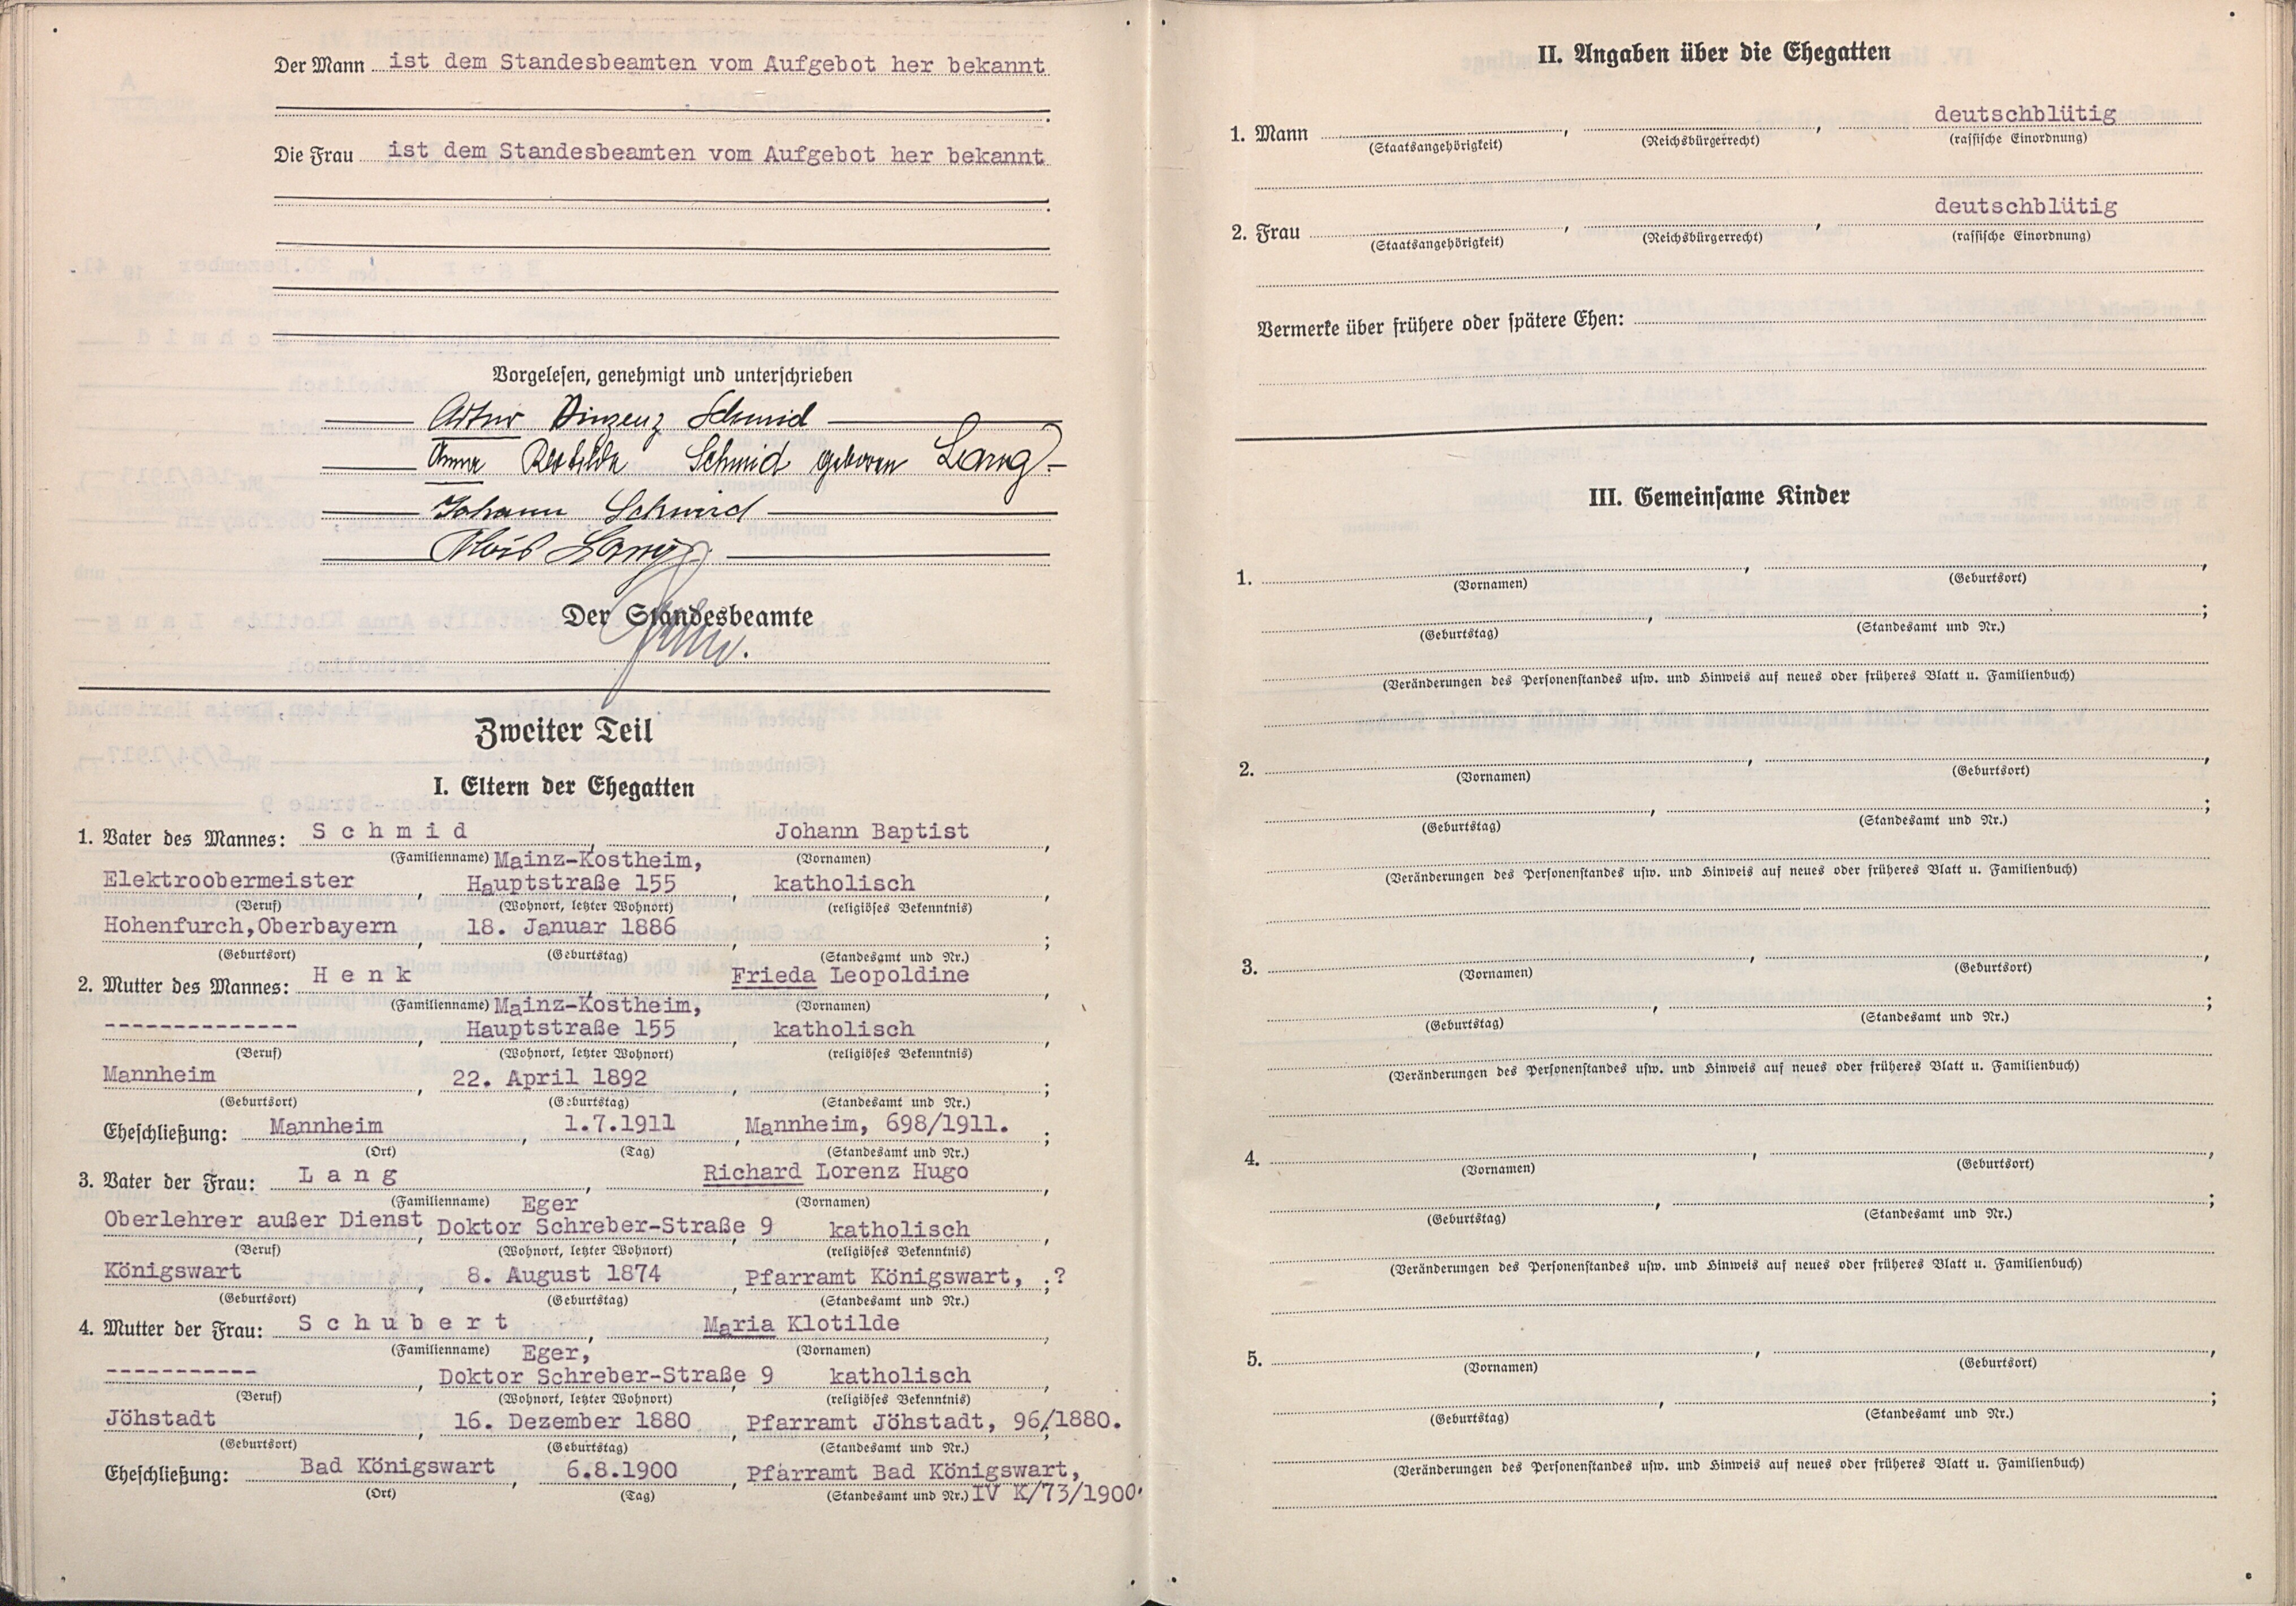 Der Mann ist dem Standesbeamten vom Aufgebot her bekannt
Die Frau ist dem Standesbeamten vom Aufgebot her bekannt
Vorgelesen, genehmigt und unterschrieben
Artur Vinzenz Schmid
Anna Klotilde Schmid geboren Lang
Johann Schmid
Alois Lang
Der Standesbeamte
Zweiter Teil
I. Eltern der Ehegatten
1. Vater des Mannes: S c h m i d , Johann Baptist ,
(Familienname) Mainz-Kostheim, (Vornamen)
Elektroobermeister , Hauptstraße 155 , katholisch ,
(Beruf) (Wohnort, letzter Wohnort) (religiöses Bekenntnis)
Hohenfurch,Oberbayern , 18. Januar 1886 , ;
(Geburtsort) (Geburtstag) (Standesamt und Nr.)
2. Mutter des Mannes: H e n k , Frieda Leopoldine ,
(Familienname) Mainz-Kostheim, (Vornamen)
-------------- , Hauptstraße 155 , katholisch ,
(Beruf) (Wohnort, letzter Wohnort) (religiöses Bekenntnis)
Mannheim , 22. April 1892 , ;
(Geburtsort) (Geburtstag) (Standesamt und Nr.)
Eheschließung: Mannheim , 1.7.1911 , Mannheim, 698/1911. ;
(Ort) (Tag) (Standesamt und Nr.)
3. Vater der Frau: L a n g , Richard Lorenz Hugo ,
(Familienname) Eger (Vornamen)
Oberlehrer außer Dienst , Doktor Schreber-Straße 9 , katholisch ,
(Beruf) (Wohnort, letzter Wohnort) (religiöses Bekenntnis)
Königswart , 8. August 1874 , Pfarramt Königswart, ; ?
(Geburtsort) (Geburtstag) (Standesamt und Nr.)
4. Mutter der Frau: S c h u b e r t , Maria Klotilde ,
(Familienname) Eger, (Vornamen)
----------- , Doktor Schreber-Straße 9 , katholisch ,
(Beruf) (Wohnort, letzter Wohnort) (religiöses Bekenntnis)
Jöhstadt , 16. Dezember 1880 , Pfarramt Jöhstadt, 96/1880. ;
(Geburtsort) (Geburtstag) (Standesamt und Nr.)
Eheschließung: Bad Königswart , 6.8.1900 , Pfarramt Bad Königswart,
(Ort) (Tag) (Standesamt und Nr.) IV K/73/1900.
II. Angaben über die Ehegatten
1. Mann , , deutschblütig
(Staatsangehörigkeit) (Reichsbürgerrecht) (rassische Einordnung)
2. Frau , , deutschblütig
(Staatsangehörigkeit) (Reichsbürgerrecht) (rassische Einordnung)
Vermerke über frühere oder spätere Ehen:
III. Gemeinsame Kinder
1. , ,
(Vornamen) (Geburtsort)
, ;
(Geburtstag) (Standesamt und Nr.)
(Veränderungen des Personenstandes usw. und Hinweis auf neues oder früheres Blatt u. Familienbuch)
2. , ,
(Vornamen) (Geburtsort)
, ;
(Geburtstag) (Standesamt und Nr.)
(Veränderungen des Personenstandes usw. und Hinweis auf neues oder früheres Blatt u. Familienbuch)
3. , ,
(Vornamen) (Geburtsort)
, ;
(Geburtstag) (Standesamt und Nr.)
(Veränderungen des Personenstandes usw. und Hinweis auf neues oder früheres Blatt u. Familienbuch)
4. , ,
(Vornamen) (Geburtsort)
, ;
(Geburtstag) (Standesamt und Nr.)
(Veränderungen des Personenstandes usw. und Hinweis auf neues oder früheres Blatt u. Familienbuch)
5. , ,
(Vornamen) (Geburtsort)
, ;
(Geburtstag) (Standesamt und Nr.)
(Veränderungen des Personenstandes usw. und Hinweis auf neues oder früheres Blatt u. Familienbuch)